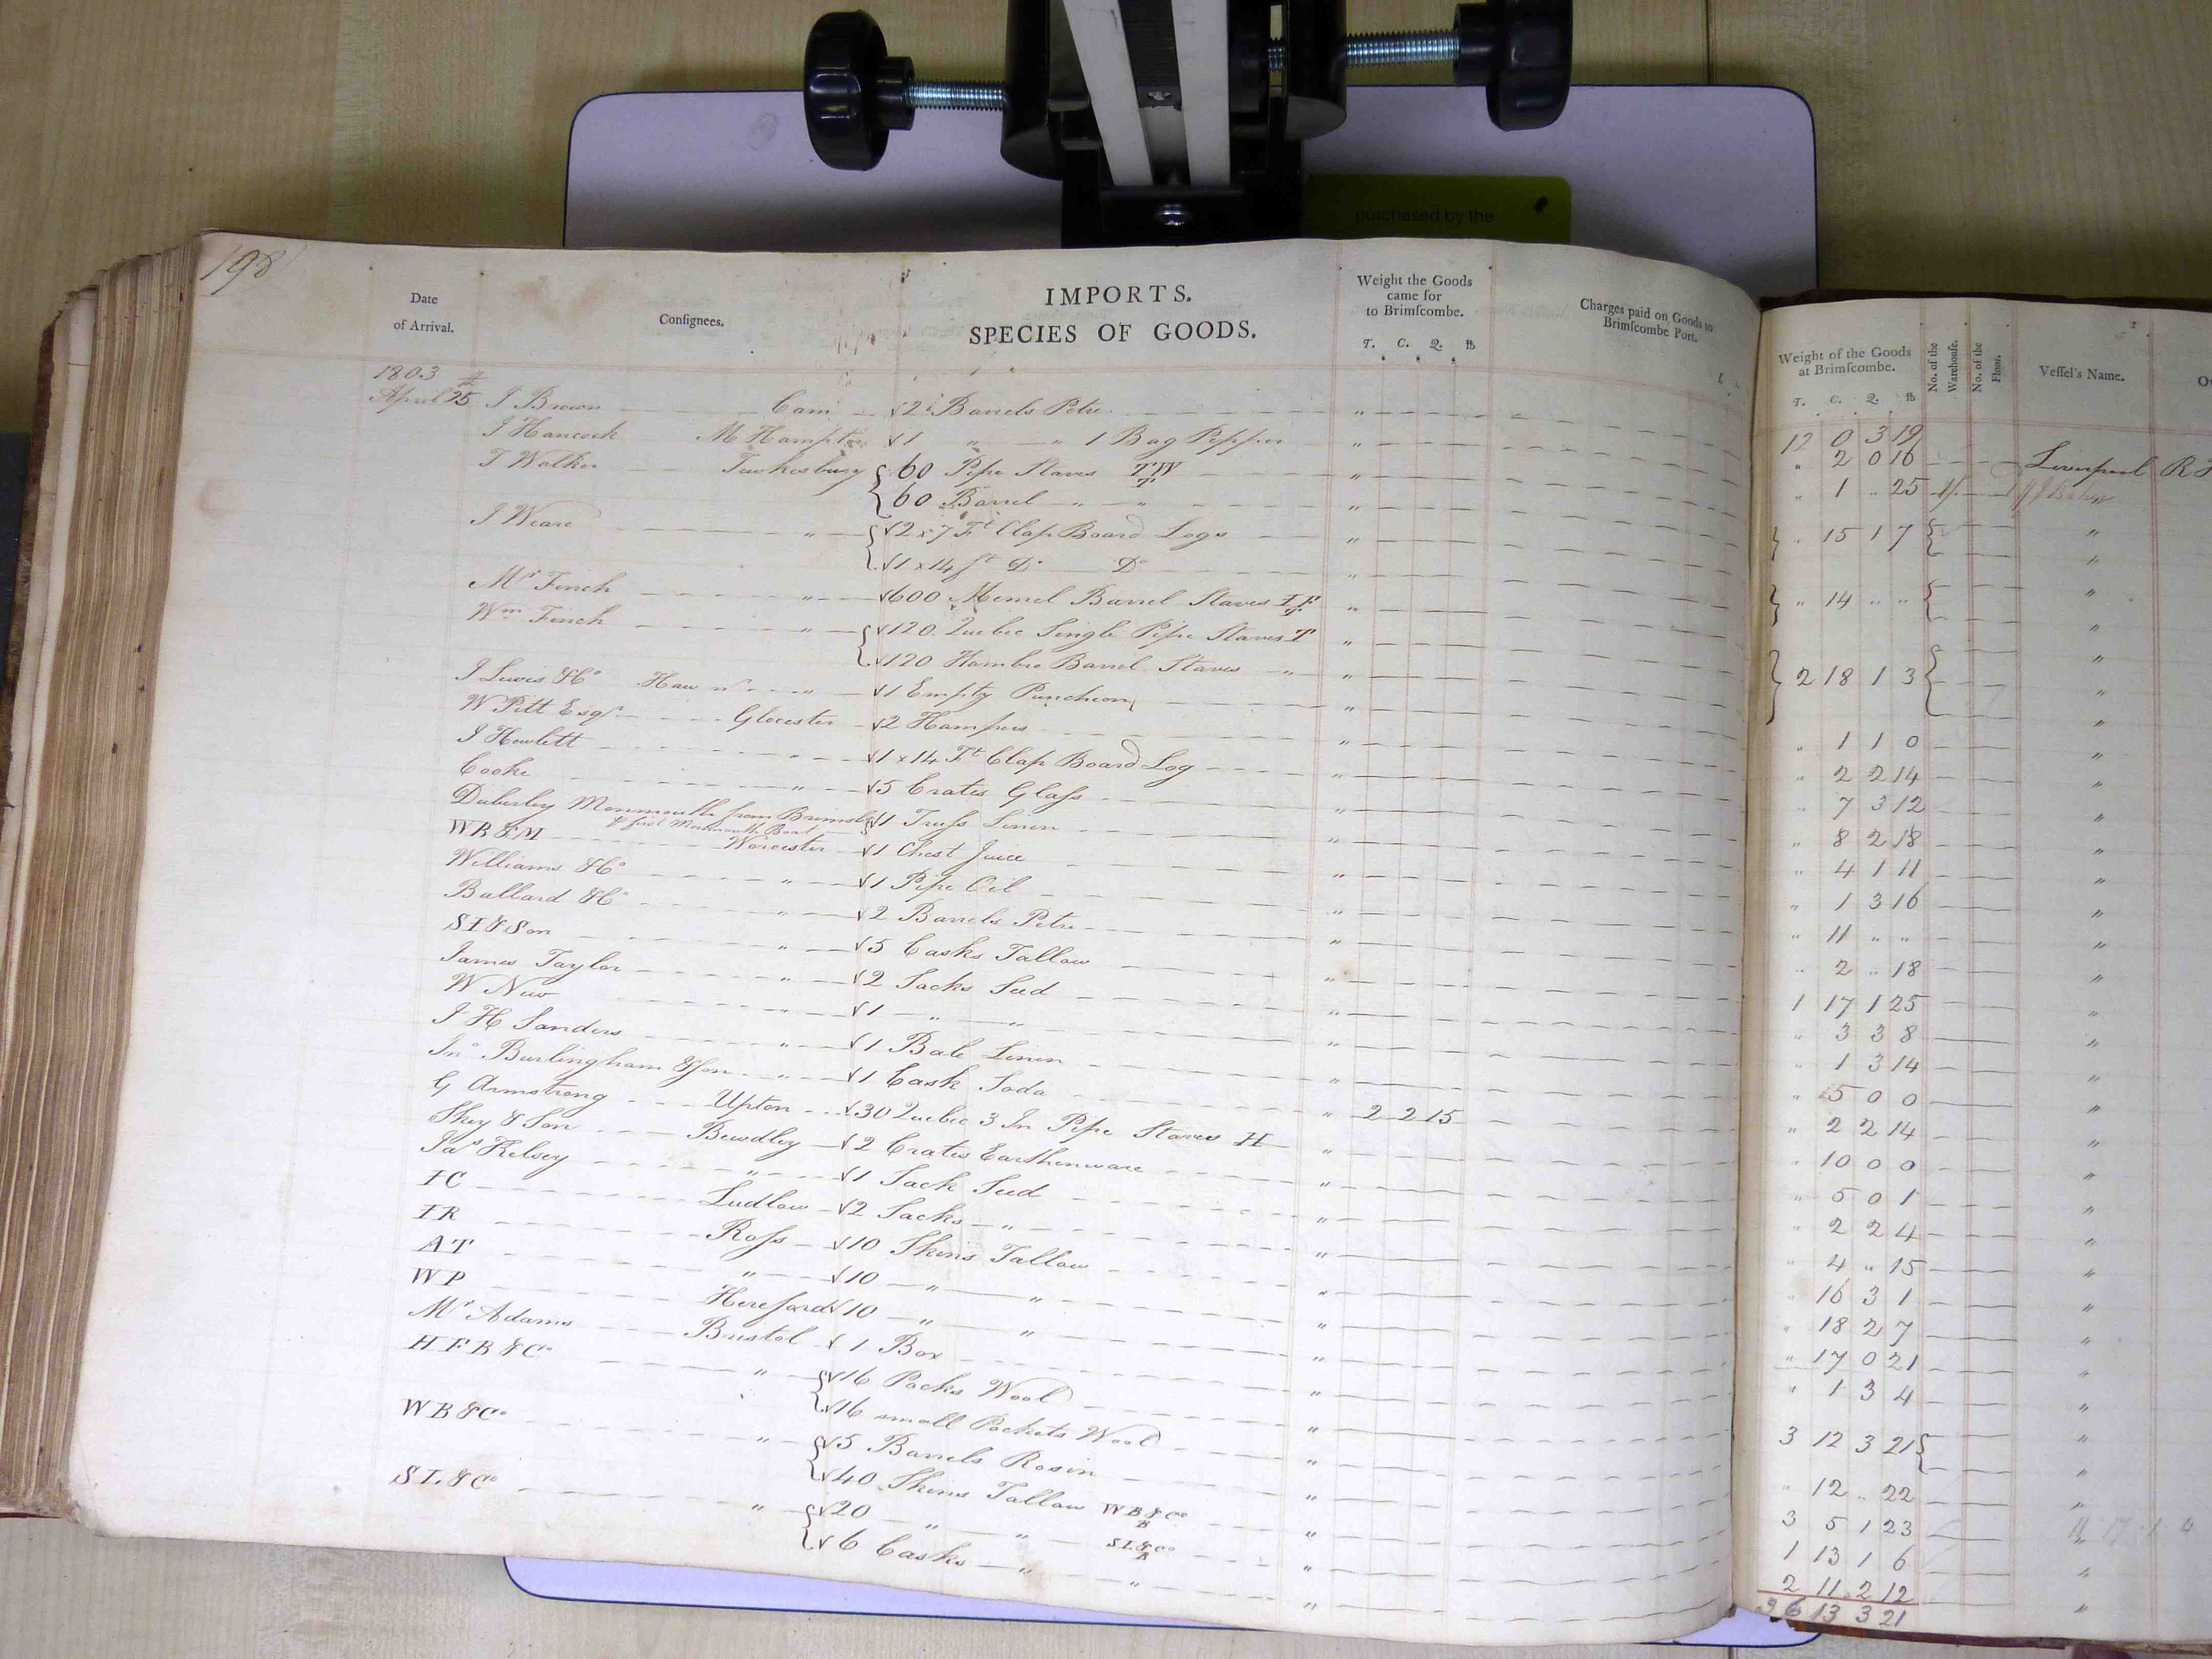 purchased by the
198
Date
of Arrival.
Consignees.
IMPORTS.
SPECIES OF GOODS.
Weight the Goods
came for
to Brimscombe.
T. C. Q. lb
Charges paid on Goods to
Brimscombe Port.
1803
April 25 J Brown Cam 2 Barrels Petre "
J Hancock M Hampton 1 " " 1 Bag Pepper "
T Walker Tewkesbury 60 Pipe Staves TW T "
60 Barrel " " "
J Weare " 2 x 7 Ft Clap Board Logs "
1 x 14 ft Do Do "
Mr Finch " 600 Memel Barrel Staves IF T "
Wm Finch " 120 Quebec Single Pipe Staves T "
120 Hambro Barrel Staves " "
J Lewis & Co Haw " 1 Empty Puncheon "
W Pitt Esqr Glocester 2 Hampers "
J Hewlett " 1 x 14 Ft Clap Board Log "
Cooke " 5 Crates Glass "
Duberley Monmouth from Brimsbe 1 Truss Linen "
first Monmouth Boat
WB&M Worcester 1 Chest Juice "
Williams & Co " 1 Pipe Oil "
Ballard & Co " 2 Barrels Petre "
SI & Son " 5 Casks Tallow "
James Taylor " 2 Sacks Seed "
W New " 1 " " "
J H Sanders " 1 Bale Linen "
Jno Burlingham & Son " 1 Cask Soda " 2 2 15
G Armstrong Upton 30 Quebec 3 In Pipe Staves H "
Skey & Son Bewdley 2 Crates Earthenware "
Jas Kelsey " 1 Sack Seed "
IC Ludlow 2 Sacks " "
IR Ross 10 Skins Tallow "
AT " 10 " " "
WP Hereford 10 " " "
Mr Adams Bristol 1 Box "
HFB & Co " 16 Packs Wool "
16 small Pockets Wool "
WB & Co " 5 Barrels Rosin "
40 Skins Tallow WB & Co B "
SI & Co " 20 " " SI & Co B "
6 Casks " " "
Weight of the Goods
at Brimscombe.
T. C. Q. lb
No. of the
Warehouse.
No. of the
Floor.
Vessel's Name.
12 0 3 19
" 2 0 16 Liverpool R
" 1 " 25 "
" 15 1 7 "
" 14 " " "
2 18 1 3 "
" 1 1 0 "
" 2 2 14 "
" 7 3 12 "
" 8 2 18 "
" 4 1 11 "
" 1 3 16 "
" 11 " " "
" 2 " 18 "
1 17 1 25 "
" 3 3 8 "
" 1 3 14 "
" 5 0 0 "
" 2 2 14 "
" 10 0 0 "
" 5 0 1 "
" 2 2 4 "
" 4 " 15 "
" 16 3 1 "
" 18 2 7 "
" 17 0 21 "
" 1 3 4 "
3 12 3 21 "
" 12 " 22 "
3 5 1 23
1 13 1 6 "
2 11 2 12 "
36 13 3 21